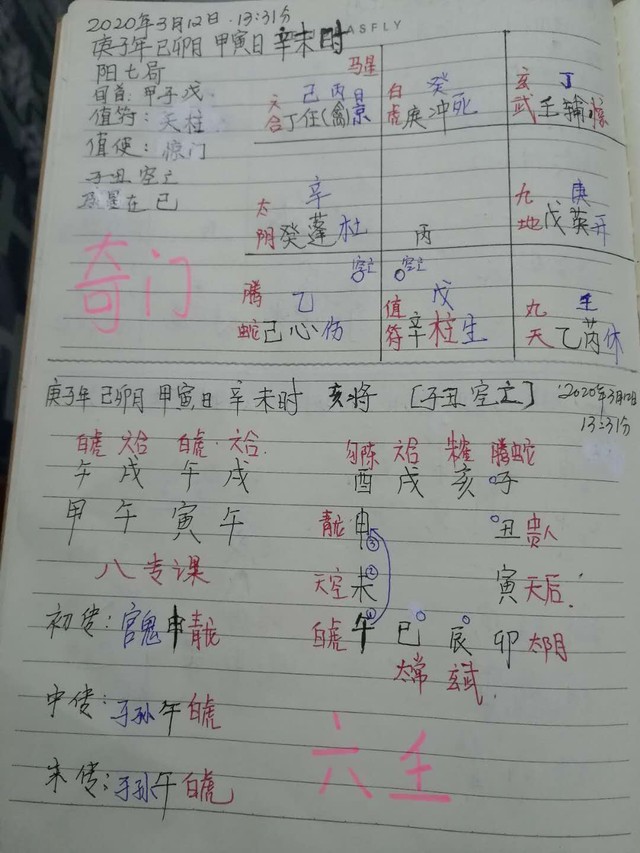 2020年3月12日.13:31分
ASFLY
庚子年己卯月 甲寅日 辛未时
阳七局
旬首:甲子戊
值符:天柱
值使:惊门
子丑空亡
马星在巳
马星
六合 己丙 丁任(禽)景
白虎 癸 庚冲死
玄武 丁 壬辅惊
太阴 辛 癸蓬杜
丙
九地 庚 戊英开
空亡 空亡
腾蛇 乙 己心伤
值符 戊 辛柱生
九天 壬 乙芮休
奇门
庚子年 己卯月 甲寅日 辛未时 亥将 [子丑空亡] 2020年3月12日
13:31分
白虎 六合 白虎 六合 勾陈 六合 朱雀 腾蛇
午 戌 午 戌 酉 戌 亥 子
甲 午 寅 午 青龙 申 丑 贵人
③
八专课 天空 未 ② 寅 天后
初传:官鬼申青龙 白虎 午 ① 巳 辰 卯 太阴
太常 玄武
中传:子孙午白虎
末传:子孙午白虎
六壬